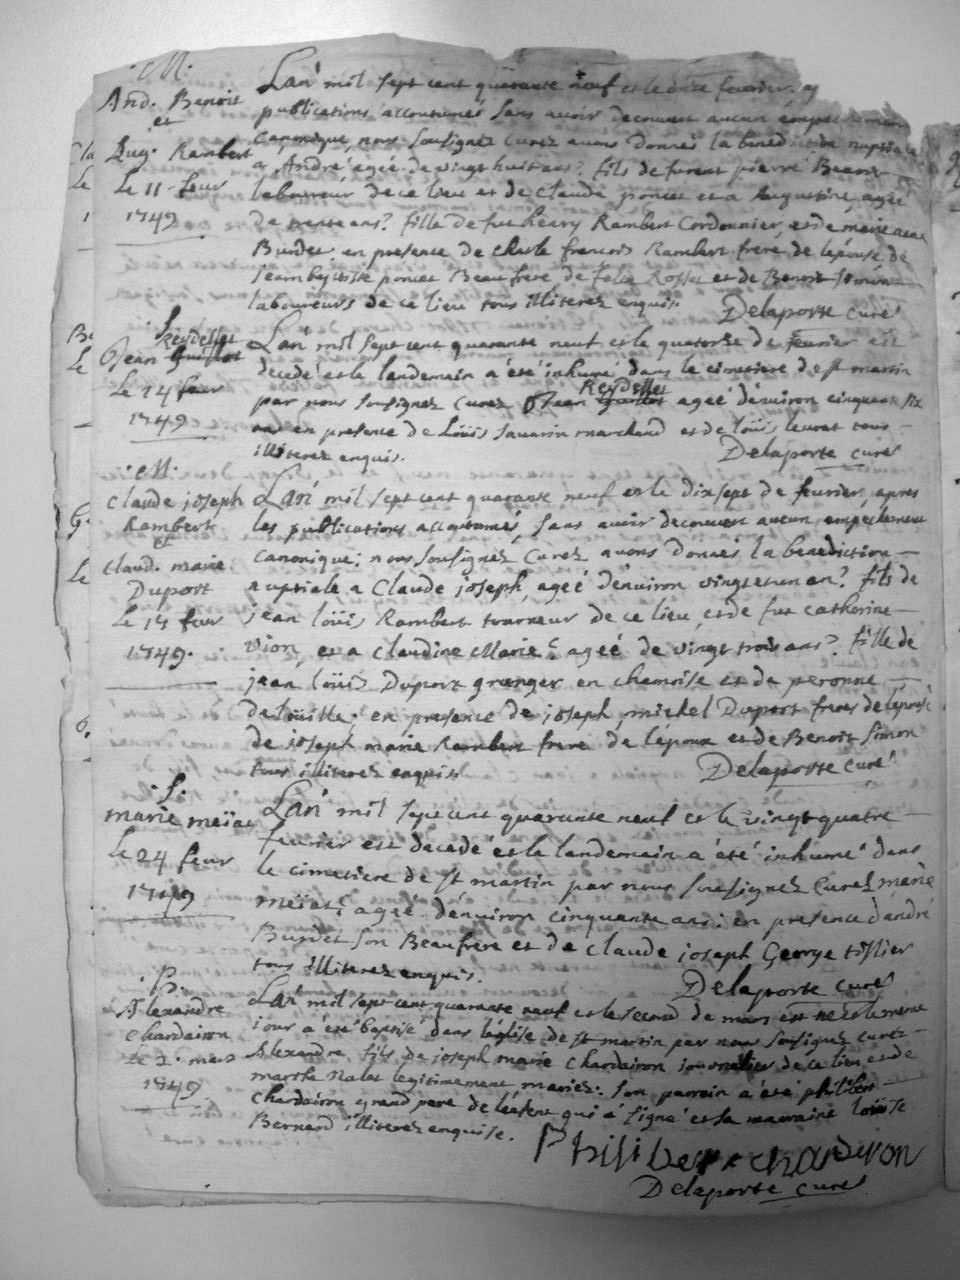 .M.
And. Benoit
et
Aug. Rambert
Le 11 feur
1749
Lan mil sept cent quarante neuf et le onze feurier
publications accoutumés sans auoir decouuert aucun empechement
canonique nous soussignez curez auons donnés la benediction nuptiale
a André agée de vingt huit ans? fils de furent pierre Benoit
laboureur de ce lieu et de claude poncet et a Augustine, agée
de trente ans? fille de fut henry Rambert Cordonnier, et de marie anne
Burdet, en presence de charle francois Rambert frere de lépouse de
jean baptiste poncet Beaufrere de felix Rosset et de Benoit Simon
laboureurs de ce lieu tous illiterez enquis.
Delaporte curé
.S.
Reydellet
jean Guillot
Le 14 feur
1749
Lan mil sept cent quarante neuf et le quatorze de feurier est
decedé et le landemain a été inhumé dans le cimetiere de st martin
par nous soussignez curez jean Guillot Reydellet ageé dénuiron cinquante six
ans en presence de Loüis sauarin marchand et de loüis leurat tous
illiterez enquis.
Delaporte curé
.M.
claude joseph
Rambert
et
claud. marie
Duport
Le 17 feur
1749.
Lan mil sept cent quarante neuf et le dixsept de feurier, apres
les publications accoutumés, sans auoir decouuert aucun empéchement
canonique: nous soussignez Curez auons donnés la benediction
nuptiale a claude joseph, ageé dénuiron vingt et un an? fils de
jean loüis Rambert tourneur de ce lieu, et de fut catherine
vion, et a claudine Marie? ageé de vingt trois ans? fille de
jean loüis Duport granger en chamoise et de peronne
deloüille. en presence de joseph michel Duport frere de lépouse
de joseph marie Rambert frere de lépoux et de Benoit Simon
tous illiterez enquis.
Delaporte curé
.S.
marie meïat
Le 24 feur
1749
Lan mil sept cent quarante neuf et le vingt quatre
feurier est decedé et le landemain a été inhumé dans
le cimetiere de st martin par nous soussignez Curez marie
meïat? ageé dénuiron cinquante ans: en presence dandré
Burdet son Beaufrere et de claude joseph George tissier
tous illiterez enquis.
Delaporte curé
.B.
Alexandre
chardeiron
Le 2. mars
1749
Lan mil sept cent quarante neuf et le second de mars est né et le meme
jour a été baptisé dans léglise de st martin par nous soussignez curez
Alexandre fils de joseph marie chardeiron journalier de ce lieu et de
marthe Nalet legitimement mariez: son parrain a été philibert
chardeiron grand pere de lenfent qui a signé et sa marraine loüise
Bernard illiterez enquise.
Philibert chardeyron
Delaporte curé